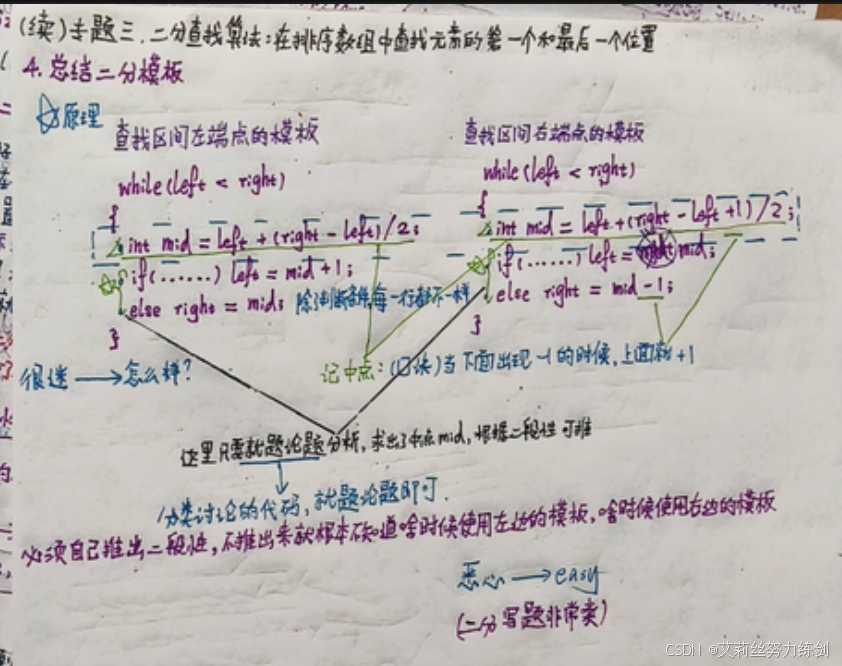 (续)专题三.二分查找算法:在排序数组中查找元素的第一个和最后一个位置
4.总结二分模板
原理
查找区间左端点的模板
while(left < right)
{
int mid = left + (right - left)/2;
if(......) left = mid + 1;
else right = mid;
}
查找区间右端点的模板
while(left < right)
{
int mid = left + (right - left + 1)/2;
if(......) left = mid;
else right = mid - 1;
}
除了判断条件,每一行都不一样
很迷 → 怎么样?
记中点:(口诀)当下面出现-1的时候,上面就+1
这里只需就题论题分析,求出了中点mid,根据二段性可推
分类讨论的代码,就题论题即可.
必须自己推出二段性,不推出来就根本不知道啥时候使用左边的模板,啥时候使用右边的模板
恶心 → easy
(二分写题非常爽)
CSDN @艾莉丝努力练剑